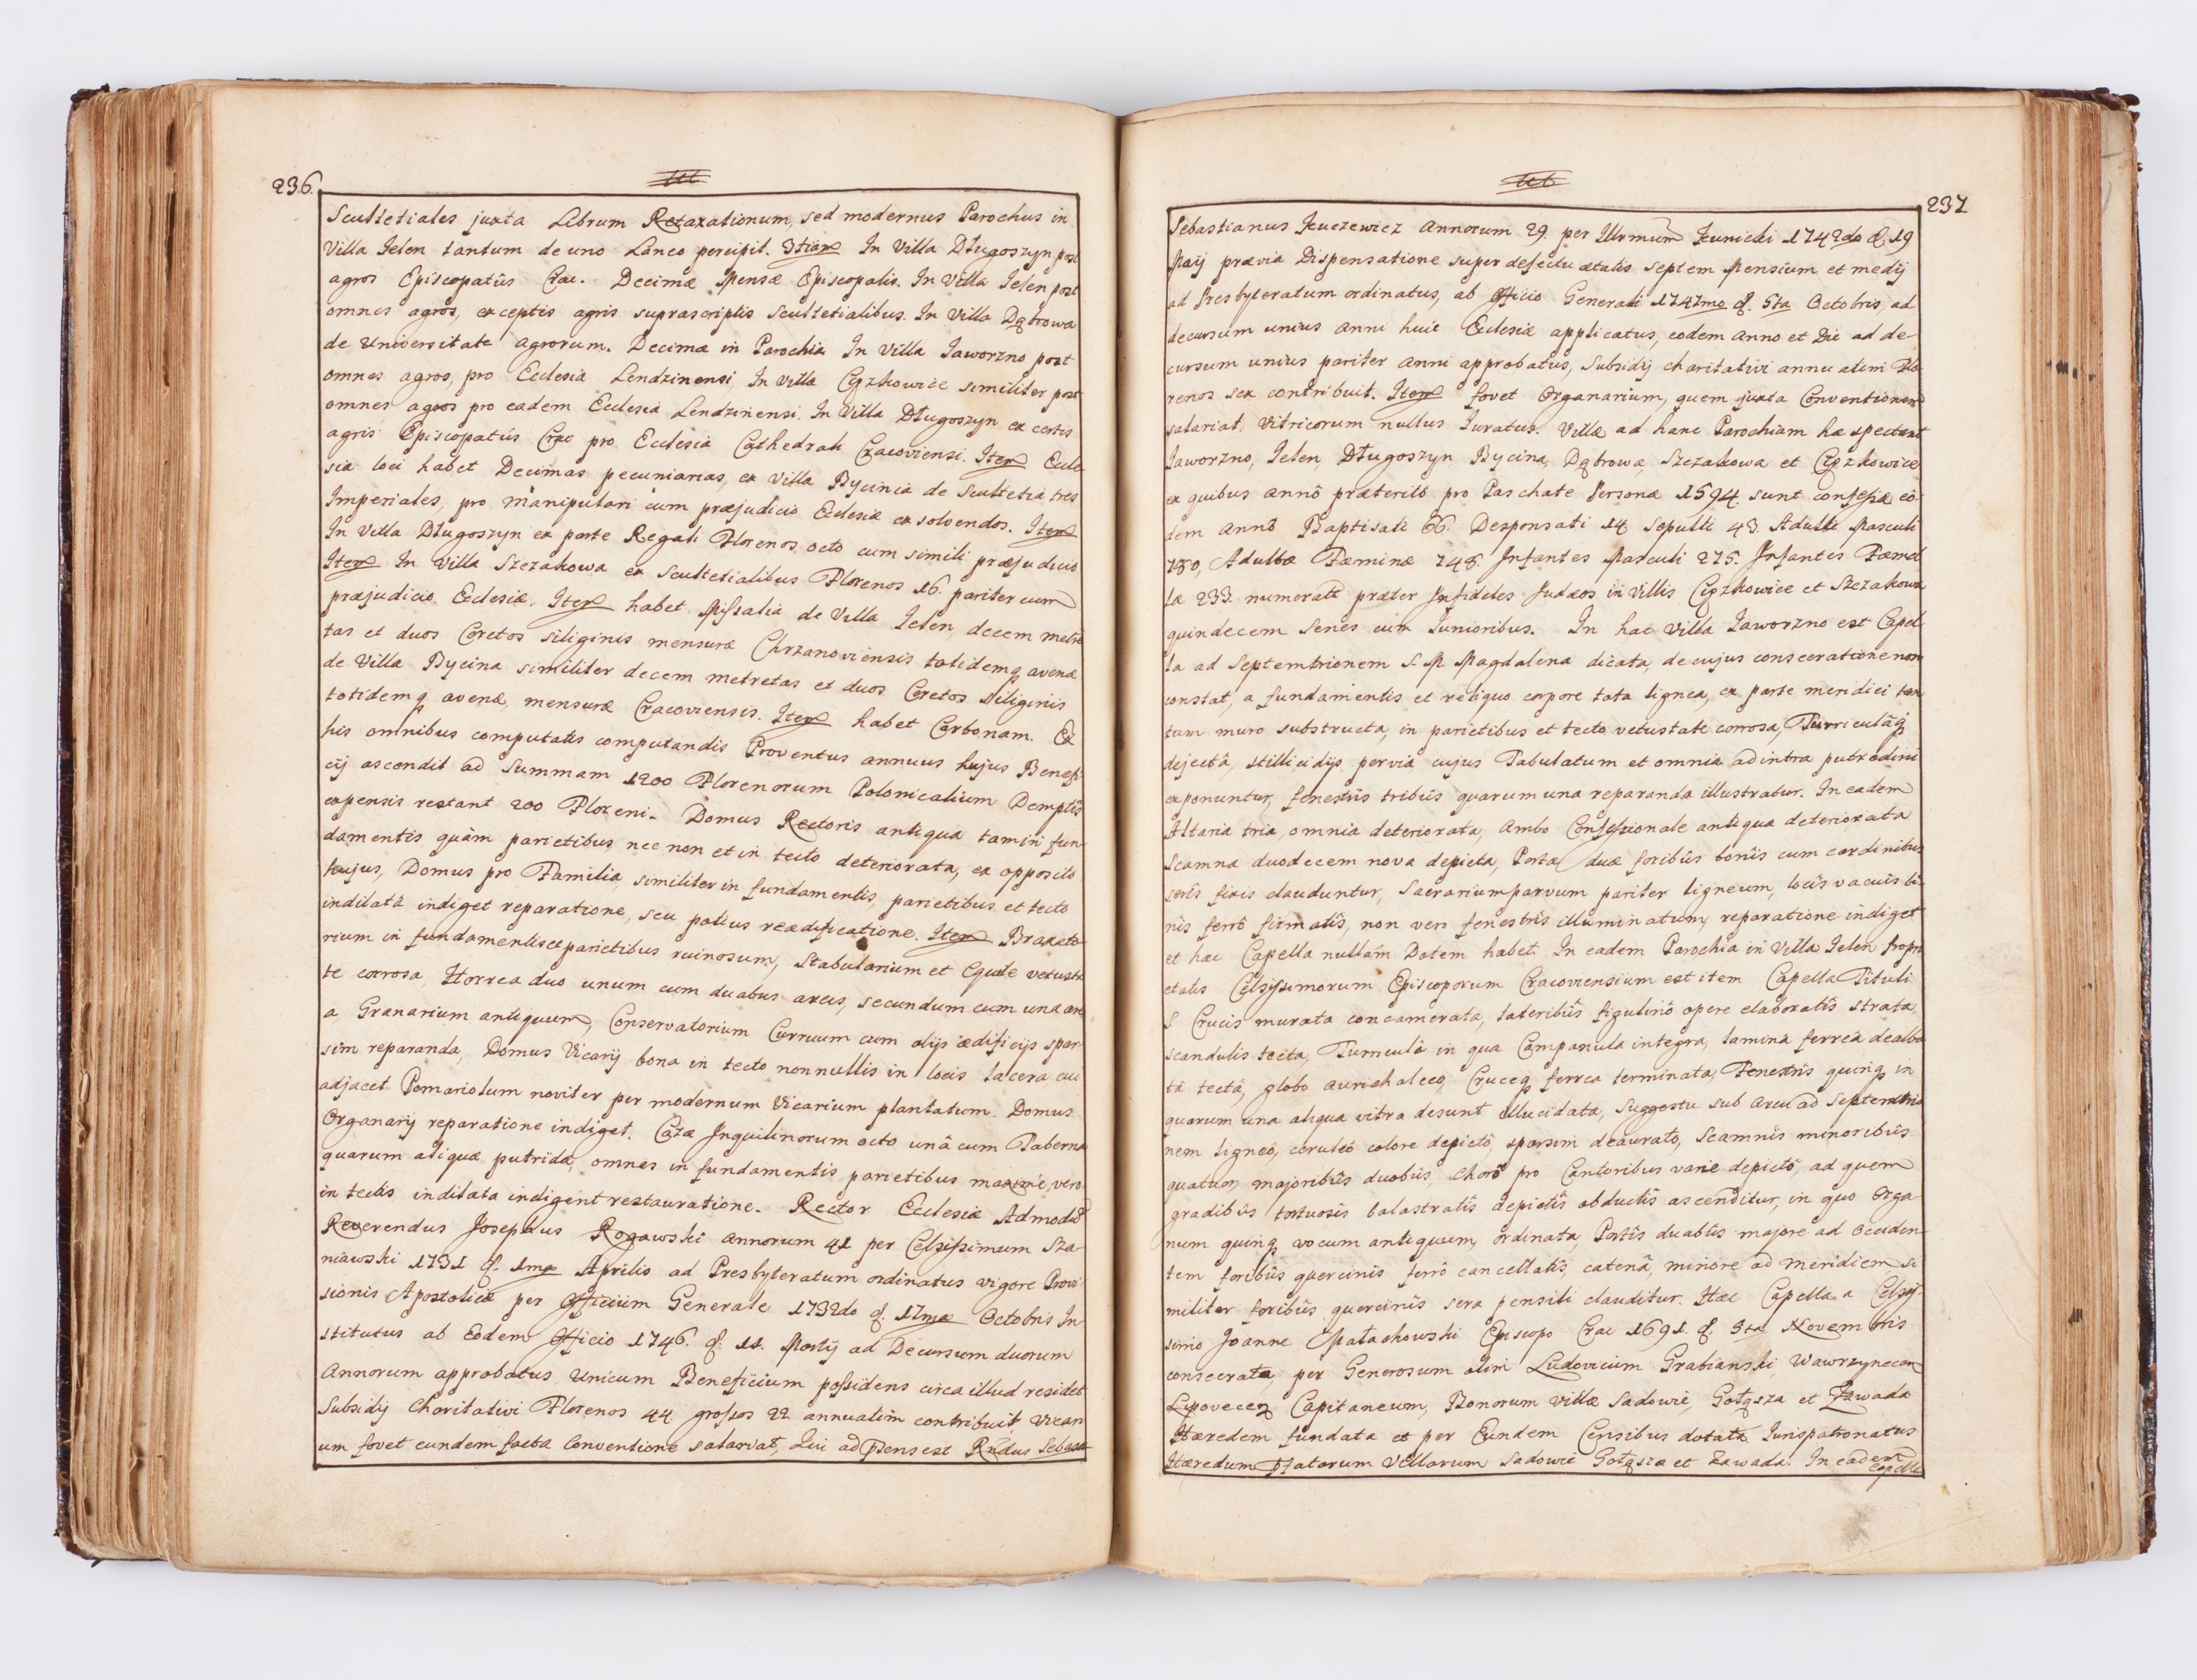 236.
Scultetiales juxta Librum Retaxationum, sed modernus Parochus in
Villa Jelen tantum de uno Laneo percipit. 3tiam In Villa Długoszyn post
agros Episcopatûs Crac. Decimæ Mensæ Episcopalis. In Villa Jelen post
omnes agros, exceptis agris suprascriptis Scultetialibus. In Villa Dąbrowa
de Universitate agrorum. Decimæ in Parochia In Villa Jaworzno post
omnes agros, pro Ecclesia Lendzinensi, In Villa Cięzkowice similiter post
omnes agros pro eadem Ecclesia Lendzinensi. In Villa Długoszyn ex certis
agris Episcopatûs Crac pro Ecclesia Cathedrali Cracoviensi. Item Eccle
sia loci habet Decimas pecuniarias, ex Villa Bycinia de Scultetia tres
Imperiales, pro manipulari cum præjudicio Ecclesiæ exsolvendos. Item
In Villa Długoszyn ex parte Regali Florenos octo cum simili præjudicio
Item In Villa Szczakowa ex Scultetialibus Florenos 16. pariter cum
præjudicio Ecclesiæ. Item habet Missalia de Villa Jelen, decem metre
tas et duos Coretos siliginis mensuræ Chrzanoviensis totidemq avenæ
de Villa Bycina similiter decem metretas et duos Coretos siliginis
totidemq avenæ, mensuræ Cracoviensis. Item habet Carbonam. Ex
his omnibus computatis computandis Proventus annuus hujus Benefi
cij ascendit ad Summam 1200 Florenorum Polonicalium Demptis
expensis restant 200 Floreni. Domus Rectoris antiqua tam in fun
damentis quàm parietibus nec non et in tecto deteriorata, ex opposito
hujus, Domus pro Familia similiter in fundamentis, parietibus et tecto
indilatâ indiget reparatione, seu potius reædificatione. Item Braxato
rium in fundamentis et parietibus ruinosum, Stabularium et Equile vetusta
te corrosa, Horrea duo unum cum duabus areis, secundum cum una are
a, Granarium antiquum, Conservatorium Curruum cum alijs ædificijs spar
sim reparanda, Domus Vicarij bona in tecto nonnullis in locis lacera, cui
adjacet Pomariolum noviter per modernum Vicarium plantatum. Domus
Organarij reparatione indiget. Casæ Inquilinorum octo unâ cum Taberna
quarum aliquæ putridæ, omnes in fundamentis parietibus maximè vero
in tectis indilata indigent restauratione. Rector Ecclesiæ Admodū
Reverendus Josephus Rogawski annorum 41 per Celsissimum Sza-
niawski 1731 d. 1ma Aprilis ad Presbyteratum ordinatus vigore Provi
sionis Apostolicæ per Officium Generale 1732do d. 17ma Octobris In
stitutus ab Eodem Officio 1746. d. 11. Martij ad Decursum duorum
Annorum approbatus, Unicum Beneficium possidens circa illud residet
Subsidij Charitativi Florenos 44 grossos 22 annuatim contribuit, Vicari
um fovet eundem facta Conventione salariat, Qui ad præns est Rndus Sebast
237
Sebastianus Kuczewicz Annorum 29. per Illrmum Kunicki 1742do d. 19
Maij prævia Dispensatione super defectu ætatis septem Mensium et medij
ad Presbyteratum ordinatus, ab Officio Generali 1747mo d. 5ta Octobris, ad
decursum unius anni huic Ecclesiæ applicatus, eodem anno et Die ad de-
cursum unius pariter anni approbatus, Subsidij charitativi annuatim Flo
renos sex contribuit. Item fovet Organarium, quem juxta Conventionem
salariat, Vitricorum nullus Juratus. Villæ ad hanc Parochiam hæ spectant
Jaworzno, Jelen, Długoszyn Bycina, Dąbrowa, Szczakowa et Cięzkowice
ex quibus annô præteritô pro Paschate Personæ 1594. sunt confessæ eo-
dem Annô Baptisati 66. Desponsati 14 Sepulti 43. Adulti Masculi
780, Adultæ Fæminæ 748. Infantes Masculi 275. Infantes Fæmel
læ 233. numerati præter Infideles Judæos in Villis Cięzkowice et Szczakowa
quindecem Senes cum Junioribus. In hac Villa Jaworzno est Capel
la ad Septemtrionem S. M. Magdalenæ dicata, de cujus consecratione non
constat, a fundamentis et reliquo corpore tota lignea, ex parte meridiei tan
tum muro substructa, in parietibus et tecto vetustate corrosa, Turriculâq
dejectâ, stillicidijs pervia cujus Tabulatum et omnia ad intra putredini
exponuntur, fenestris tribûs quarum una reparanda illustratur. In eadem
Altaria tria, omnia deteriorata, Ambo Confessionale antiqua deteriorata
Scamna duodecem nova depicta, Portæ duæ foribûs bonîs cum cardinibus
serîs fixis clauduntur, Sacrarium parvum pariter ligneum, locîs vacuîs bi-
nîs ferrô firmatîs, non vero fenestrîs illuminatum, reparatione indiget
et hæc Capella nullam Dotem habet. In eadem Parochia in Villa Jelen propri
etatis Celsissimorum Episcoporum Cracoviensium est item Capella Tituli
S. Crucis murata concamerata, lateribûs figulinô opere elaboratîs strata,
scandulis tecta, Turriculâ in qua Campanula integra, lamina ferreâ dealba
tâ tectâ, globo aurichalceo, Cruceq ferrea terminata, Fenestrîs quinq in
quarum una aliqua vitra desunt ellucidata, Suggestu sub arcu ad Septemtrio
nem ligneô, ceruleô colore depictô, sparsim deauratô, Scamnîs minoribûs
quatuor, majoribûs duobûs, Chorô pro Cantoribus variè depictô, ad quem
gradibûs tortuosis balastratîs depictîs obductîs ascenditur, in quo Orga
num quinq vocum antiquum, ordinata, Portîs duabûs majore ad Occiden
tem foribûs quercinîs ferrô cancellatîs, catenâ, minore ad meridiem si
militer foribûs quercinîs sera pensili clauditur. Hæc Capella a Celsis
simo Joanne Małachowski Episcopo Crac 1691. d. 3tia Novembris
consecrata, per Generosum olim Ludovicum Grabianski, Wawrzynecen
Lipovecen Capitaneum, Bonorum Villæ Sadowie, Gołąsza et Zawada
Hæredem fundata et per Eundem Censibus dotata Jurispatronatus
Hæredum Villarum Sadowie Gołąsza et Zawada. In eadem
Capella